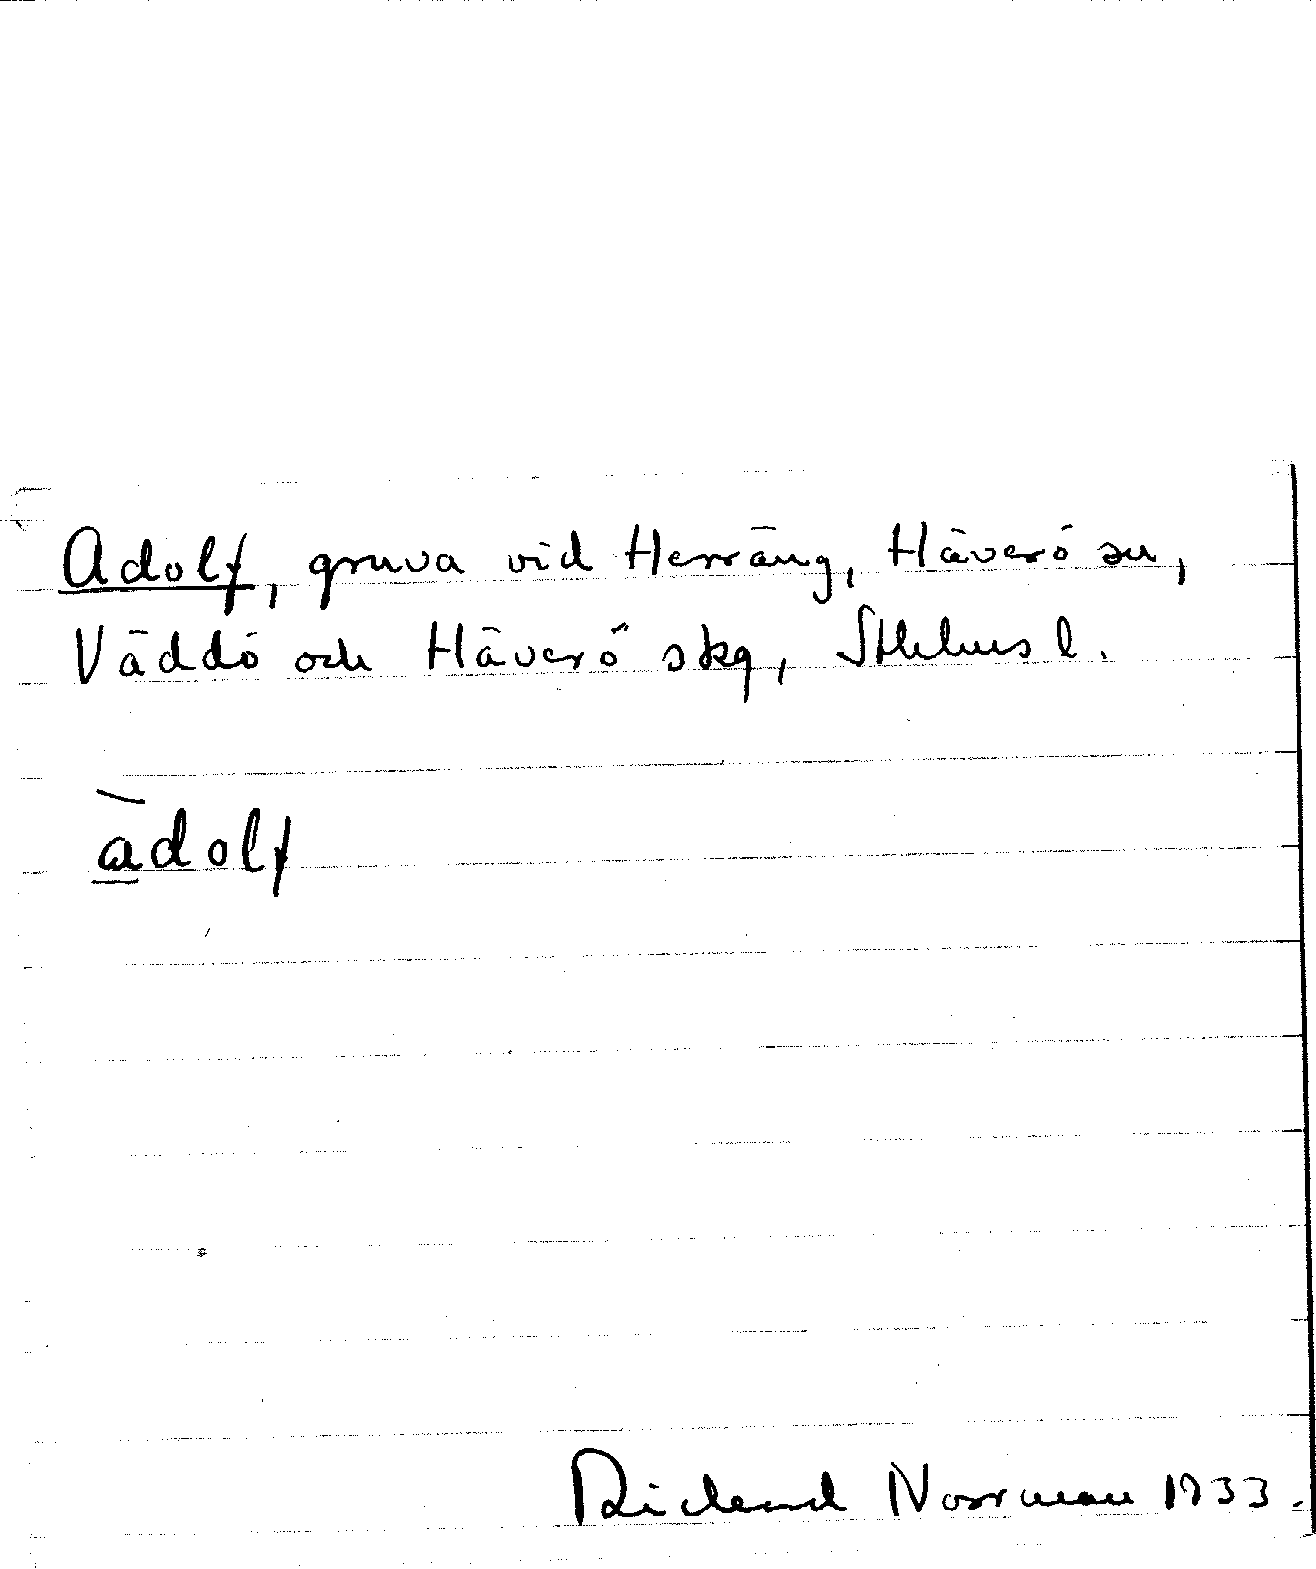 Adolf, gruva vid Herräng, Häverö sn,
Väddö och Häverö skg, Sthlms l.
àdolf
Richard Norrman 1933.